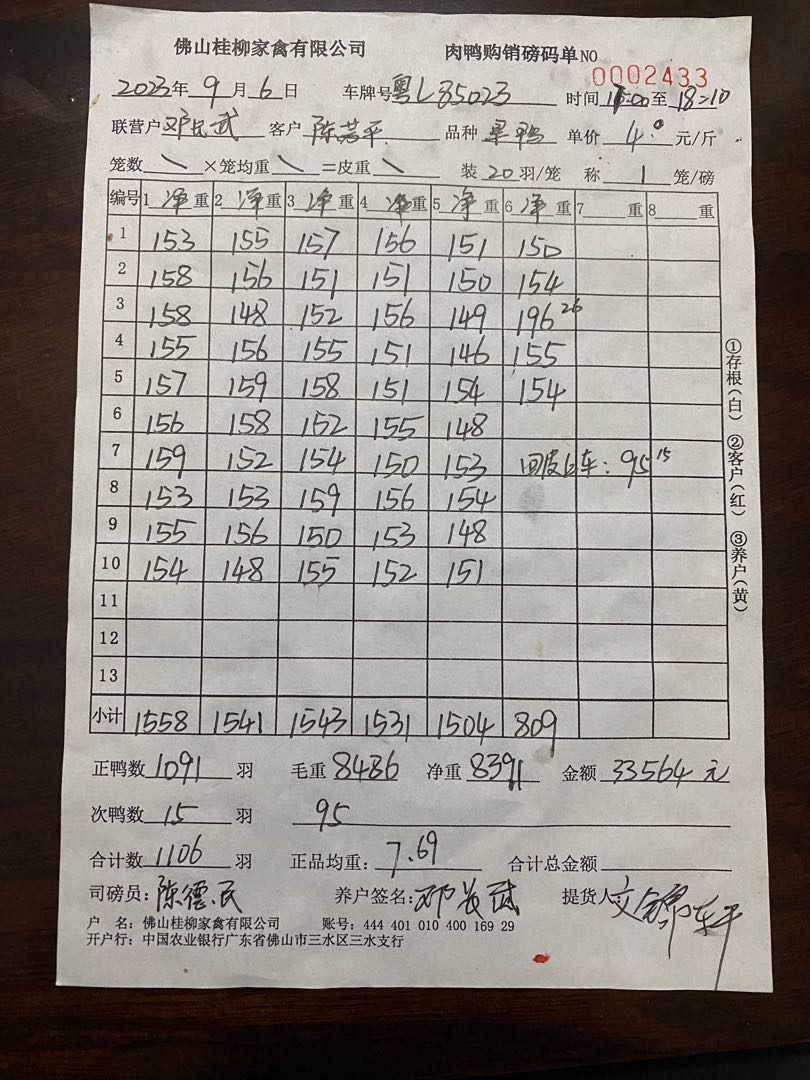 佛山桂柳家禽有限公司 肉鸭购销磅码单NO 0002433
2023年 9 月 6 日 车牌号 粤L85023 时间 15:00 至 18:10
联营户 邓长武 客户 陈芳平 品种 单价 4.0 元/斤
笼数 \ ×笼均重 \ =皮重 \ 装 20 羽/笼 称 1 笼/磅
编号 1 净 重 2 净 重 3 净 重 4 净 重 5 净 重 6 净 重 7 重 8 重
1 153 155 157 156 151 150
2 158 156 151 151 150 154
3 158 148 152 156 149 196 26
4 155 156 155 151 146 155
5 157 159 158 151 154 154
6 156 158 152 155 148
7 159 152 154 150 153 回皮白车:95 15
8 153 153 159 156 154
9 155 156 150 153 148
10 154 148 155 152 151
11
12
13
小计 1558 1541 1543 1531 1504 809
正鸭数 1091 羽 毛重 8486 净重 8391 金额 33564 元
次鸭数 15 羽 95
合计数 1106 羽 正品均重: 7.69 合计总金额
司磅员: 陈德民 养户签名: 邓长武 提货人
户 名:佛山桂柳家禽有限公司 账号:444 401 010 400 169 29
开户行:中国农业银行广东省佛山市三水区三水支行
①存根(白) ②客户(红) ③养户(黄)